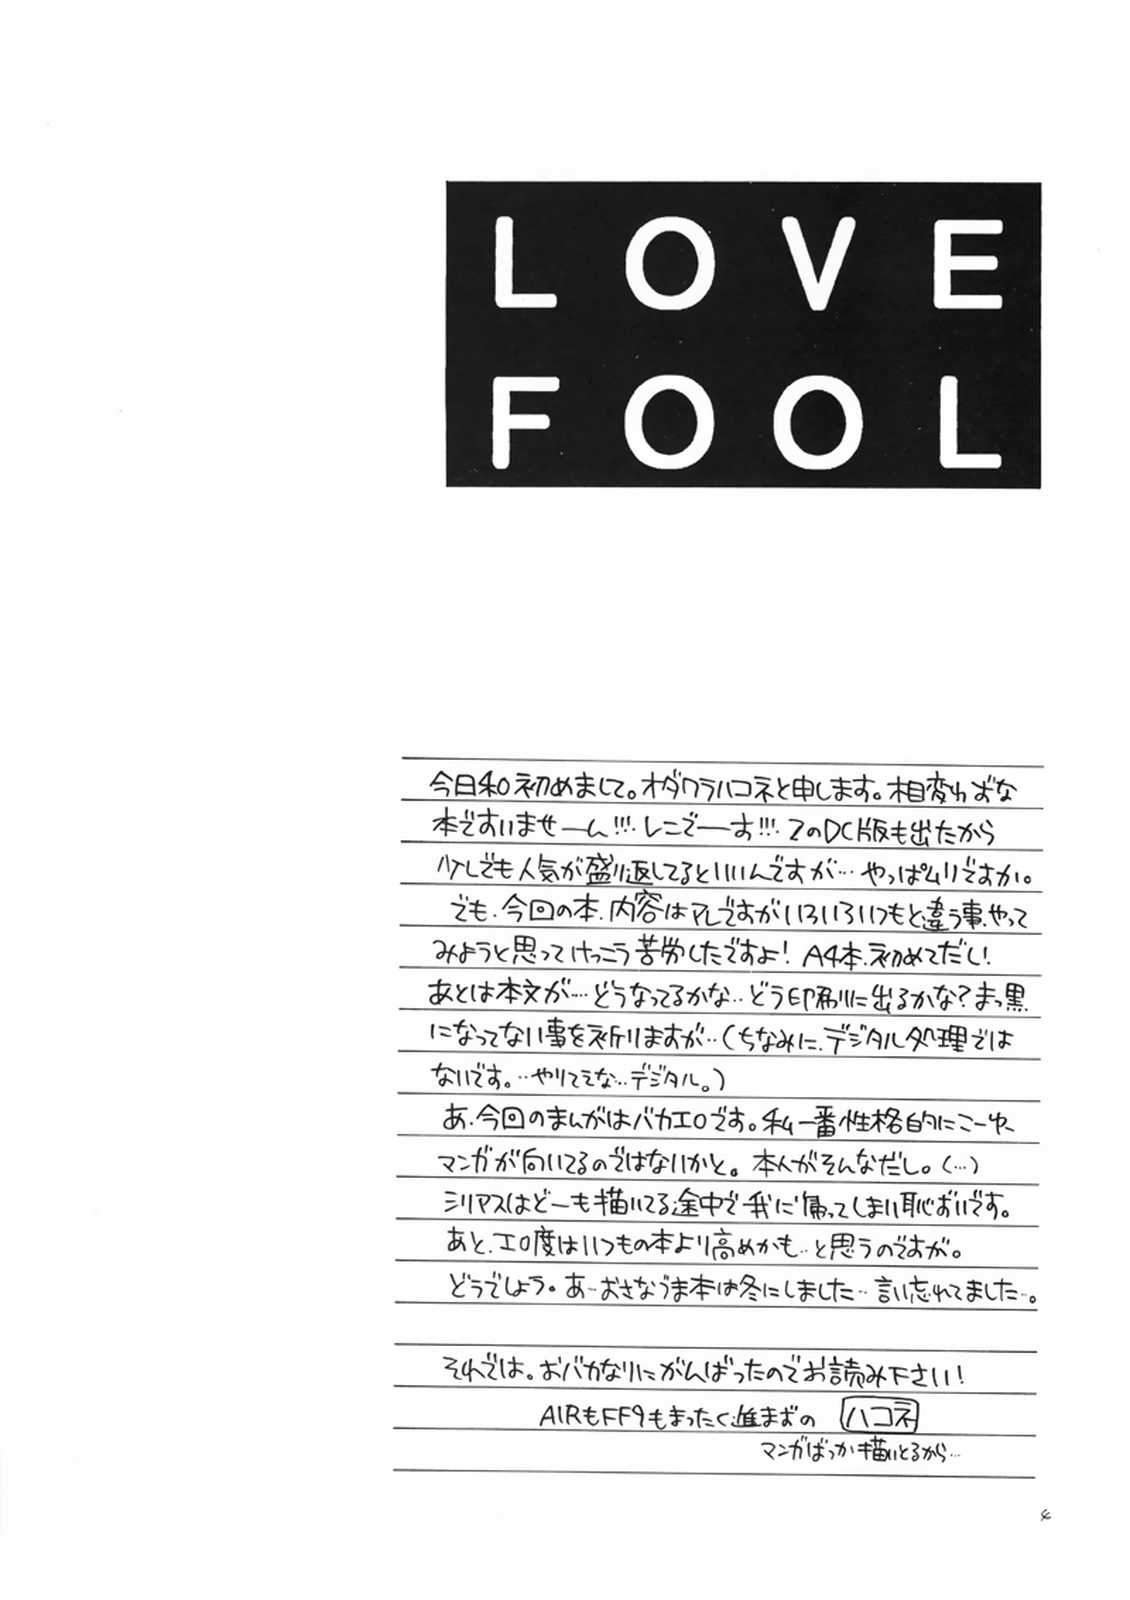 LOVE
FOOL
今日和初めまして。オダワラハコネと申します。相変わらずな
本ですいませーん!!!レニでーす!!!2のDC版も出たから
少しでも人気が盛り返してるといいんですが…やっぱムリですか。
でも、今回の本、内容はアレですがいろいろいつもと違う事、やって
みようと思ってけっこう苦労したですよ! A4本、初めてだし!
あとは本文が…どうなってるかな‥どう印刷に出るかな?まっ黒
になってない事を祈りますが‥(ちなみに、デジタル処理では
ないです。‥やりてえな…デジタル。)
あ、今回のまんがはバカエロです。私一番性格的にこーゆー
マンガが向いてるのではないかと。本人がそんなだし。(…)
シリアスはどーも描いてる途中で我に帰ってしまい恥ずいです。
あと、エロ度はいつもの本より高めかも‥と思うのですが。
どうでしょう。あ‥おさなづま本は冬にしました‥言い忘れてました‥。
それでは。おバカなりにがんばったのでお読み下さい!
AIRもFF9もまったく進まずの ハコネ
マンガばっか描いとるから…
4